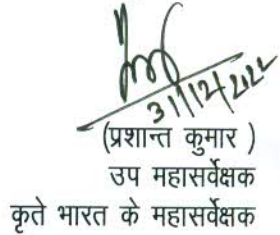 31/12/2022
(प्रशान्त कुमार )
उप महासर्वेक्षक
कृते भारत के महासर्वेक्षक